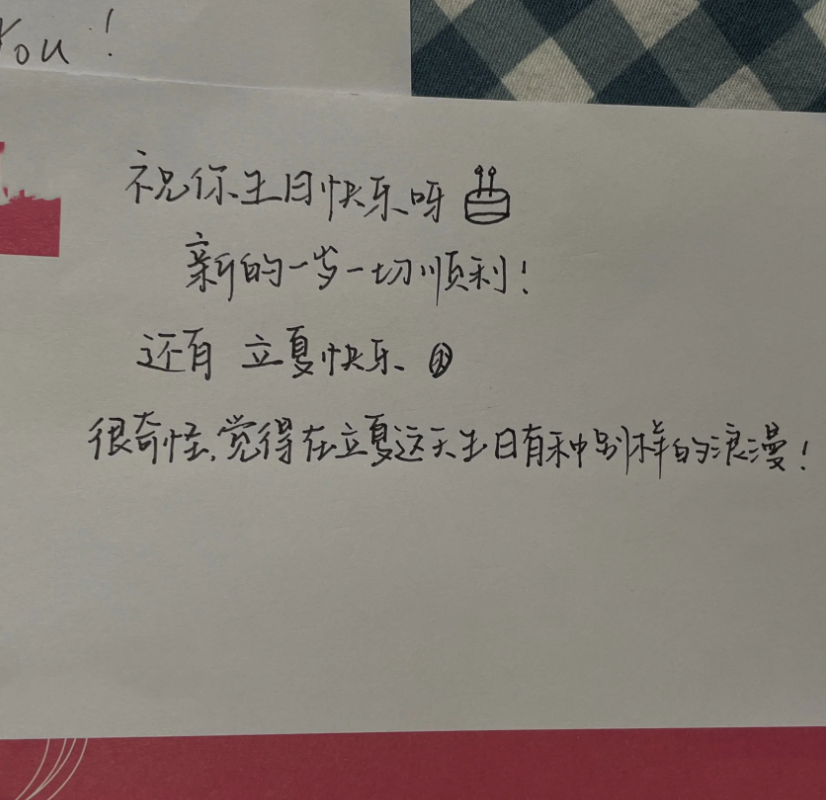 You!
祝你生日快乐呀
新的一岁一切顺利!
还有 立夏快乐
很奇怪,觉得在立夏这天生日有种别样的浪漫!